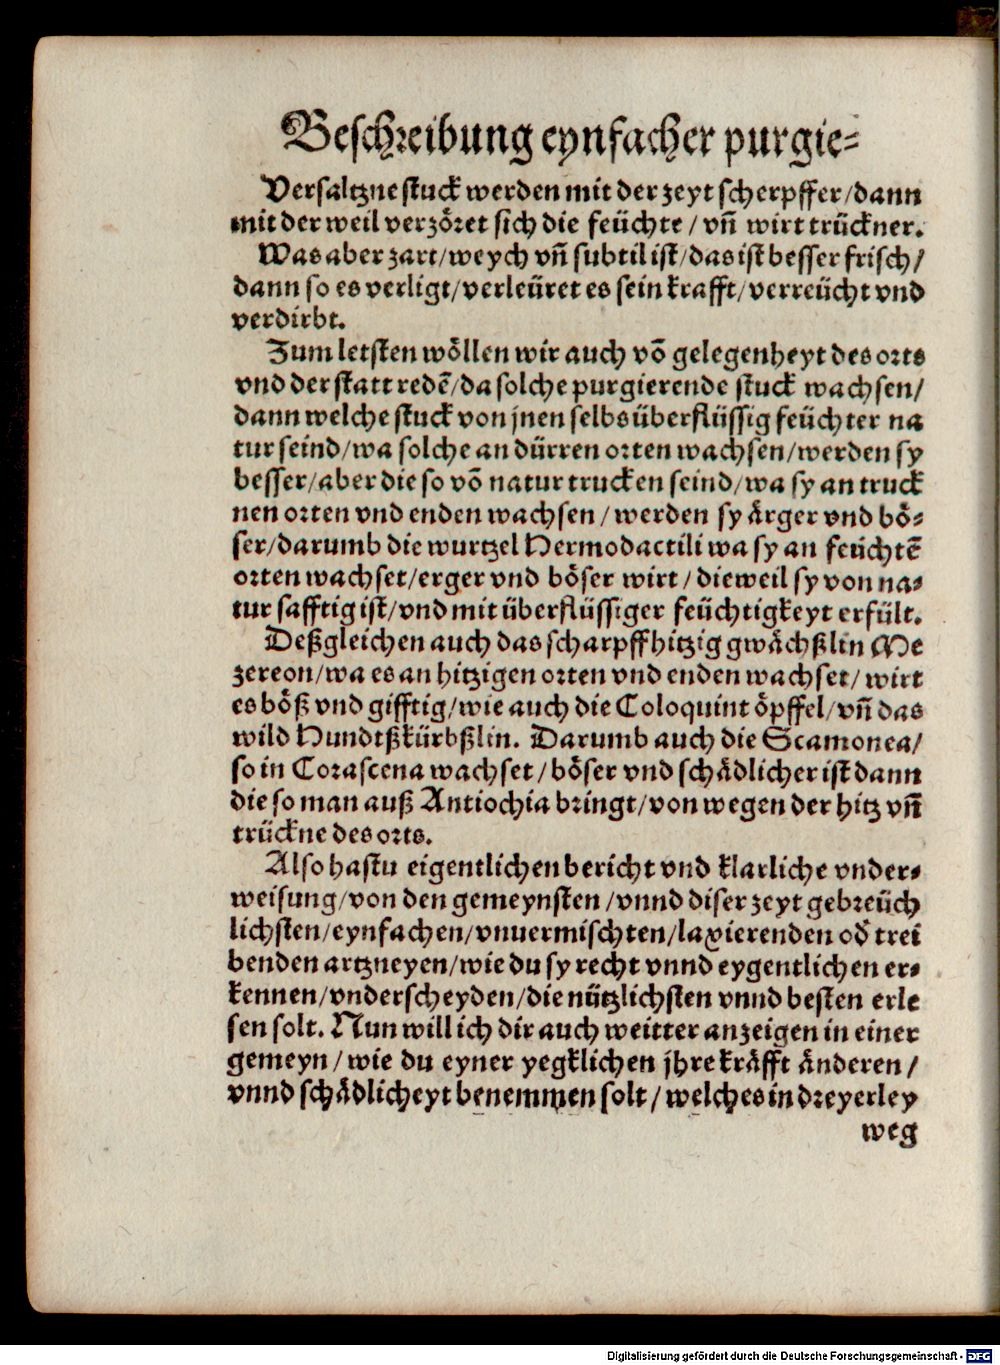 Beschreibung eynfacher purgie⸗
Versaltzne stuck werden mit der zeyt scherpffer / dann
mit der weil verzoͤret sich die feüchte / vnñ wirt trückner.
Was aber zart / weych vñ subtil ist / das ist besser frisch /
dann so es verligt / verleüret es sein krafft / verreücht vnd
verdirbt.
Zum letsten woͤllen wir auch võ gelegenheyt des orts
vnd der statt redẽ / da solche purgierende stuck wachsen /
dann welche stuck von jnen selbs überflüssig feüchter na
tur seind / wa solche an dürren orten wachsen / werden sy
besser / aber die so võ natur trucken seind / wa sy an truck
nen orten vnd enden wachsen / werden sy aͤrger vnd boͤ⸗
ser / darumb die wurtzel Hermodactili wa sy an feüchtẽ
orten wachset / erger vnd boͤser wirt / dieweil sy von na⸗
tur safftig ist / vnd mit überflüssiger feüchtigkeyt erfült.
Deßgleichen auch das scharpff hitzig gwaͤchßlin Me
zereon / wa es an hitzigen orten vnd enden wachset / wirt
es boͤß vnd gifftig / wie auch die Coloquint oͤpffel / vñ das
wild Hundtßkürbßlin. Darumb auch die Scamonea /
so in Corascena wachset / boͤser vnd schaͤdlicher ist dann
die so man auß Antiochia bringt / von wegen der hitz vñ
trückne des orts.
Also hastu eigentlichen bericht vnd klarliche vnder⸗
weisung / von den gemeynsten / vnnd diser zeyt gebreüch
lichsten / eynfachen / vnuermischten / laxierenden oď trei
benden artzneyen / wie du sy recht vnnd eygentlichen er⸗
kennen / vnderscheyden / die nützlichsten vnnd besten erle
sen solt. Nun will ich dir auch weitter anzeigen in einer
gemeyn / wie du eyner yegklichen jhre kraͤfft aͤnderen /
vnnd schaͤdlicheyt benemmen solt / welches in dreyerley
weg
Digitalisierung gefördert durch die Deutsche Forschungsgemeinschaft - DFG